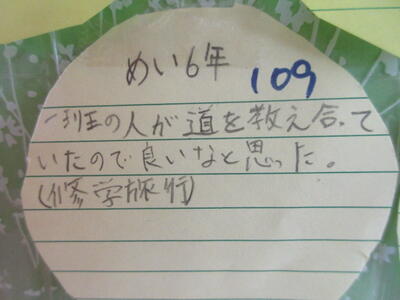 めい6年
109
一班の人が道を教え合って
いたので良いなと思った。
(修学旅行)